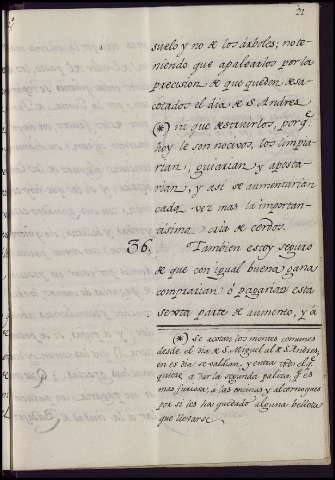 21
suelo y no de los árboles; no te-
niendo que apalearlos por la
precision de que queden desa-
cotados el dia de S. Andres
(*) ni que destruirlos, porq.e
hoy le son nocivos, los limpia-
rian, guiarian y aposta-
rian, y asi se aumentarian
cada vez mas la importan-
tisima cria de cerdos.
36. Tambien estoy seguro
de que con igual buena gana
comprarian ó pagarian esta
sexta parte de aumento, y á
(*) Se acotan los montes comunes
desde el dia de S. Miguel al de S. Andres,
en es dia se valdian, y entra todo el q.e
quiere á dar la segunda paliza, q.e es
mas furiosa, á las encinas y alcornoques
por si les ha quedado alguna bellota
que llevarse.